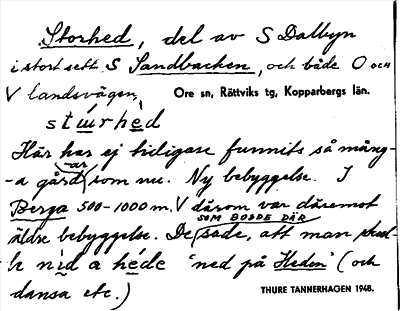 Storhed, del av S Dalbyn
i stort sett S Sandbacken, och både O och
V landsvägen, Ore sn, Rättviks tg, Kopparbergs län.
stɯ́rhèd
Här har ej tidigare funnits så mång-
-a gård -ar som nu. Ny bebyggelse. I
Berga 500-1000 m. V därom var däremot
äldre bebyggelse. De SOM BODDE DÄR sade, att man skul-
le nìd a héde "ned på Heden" (och
dansa etc.) THURE TANNERHAGEN 1948.